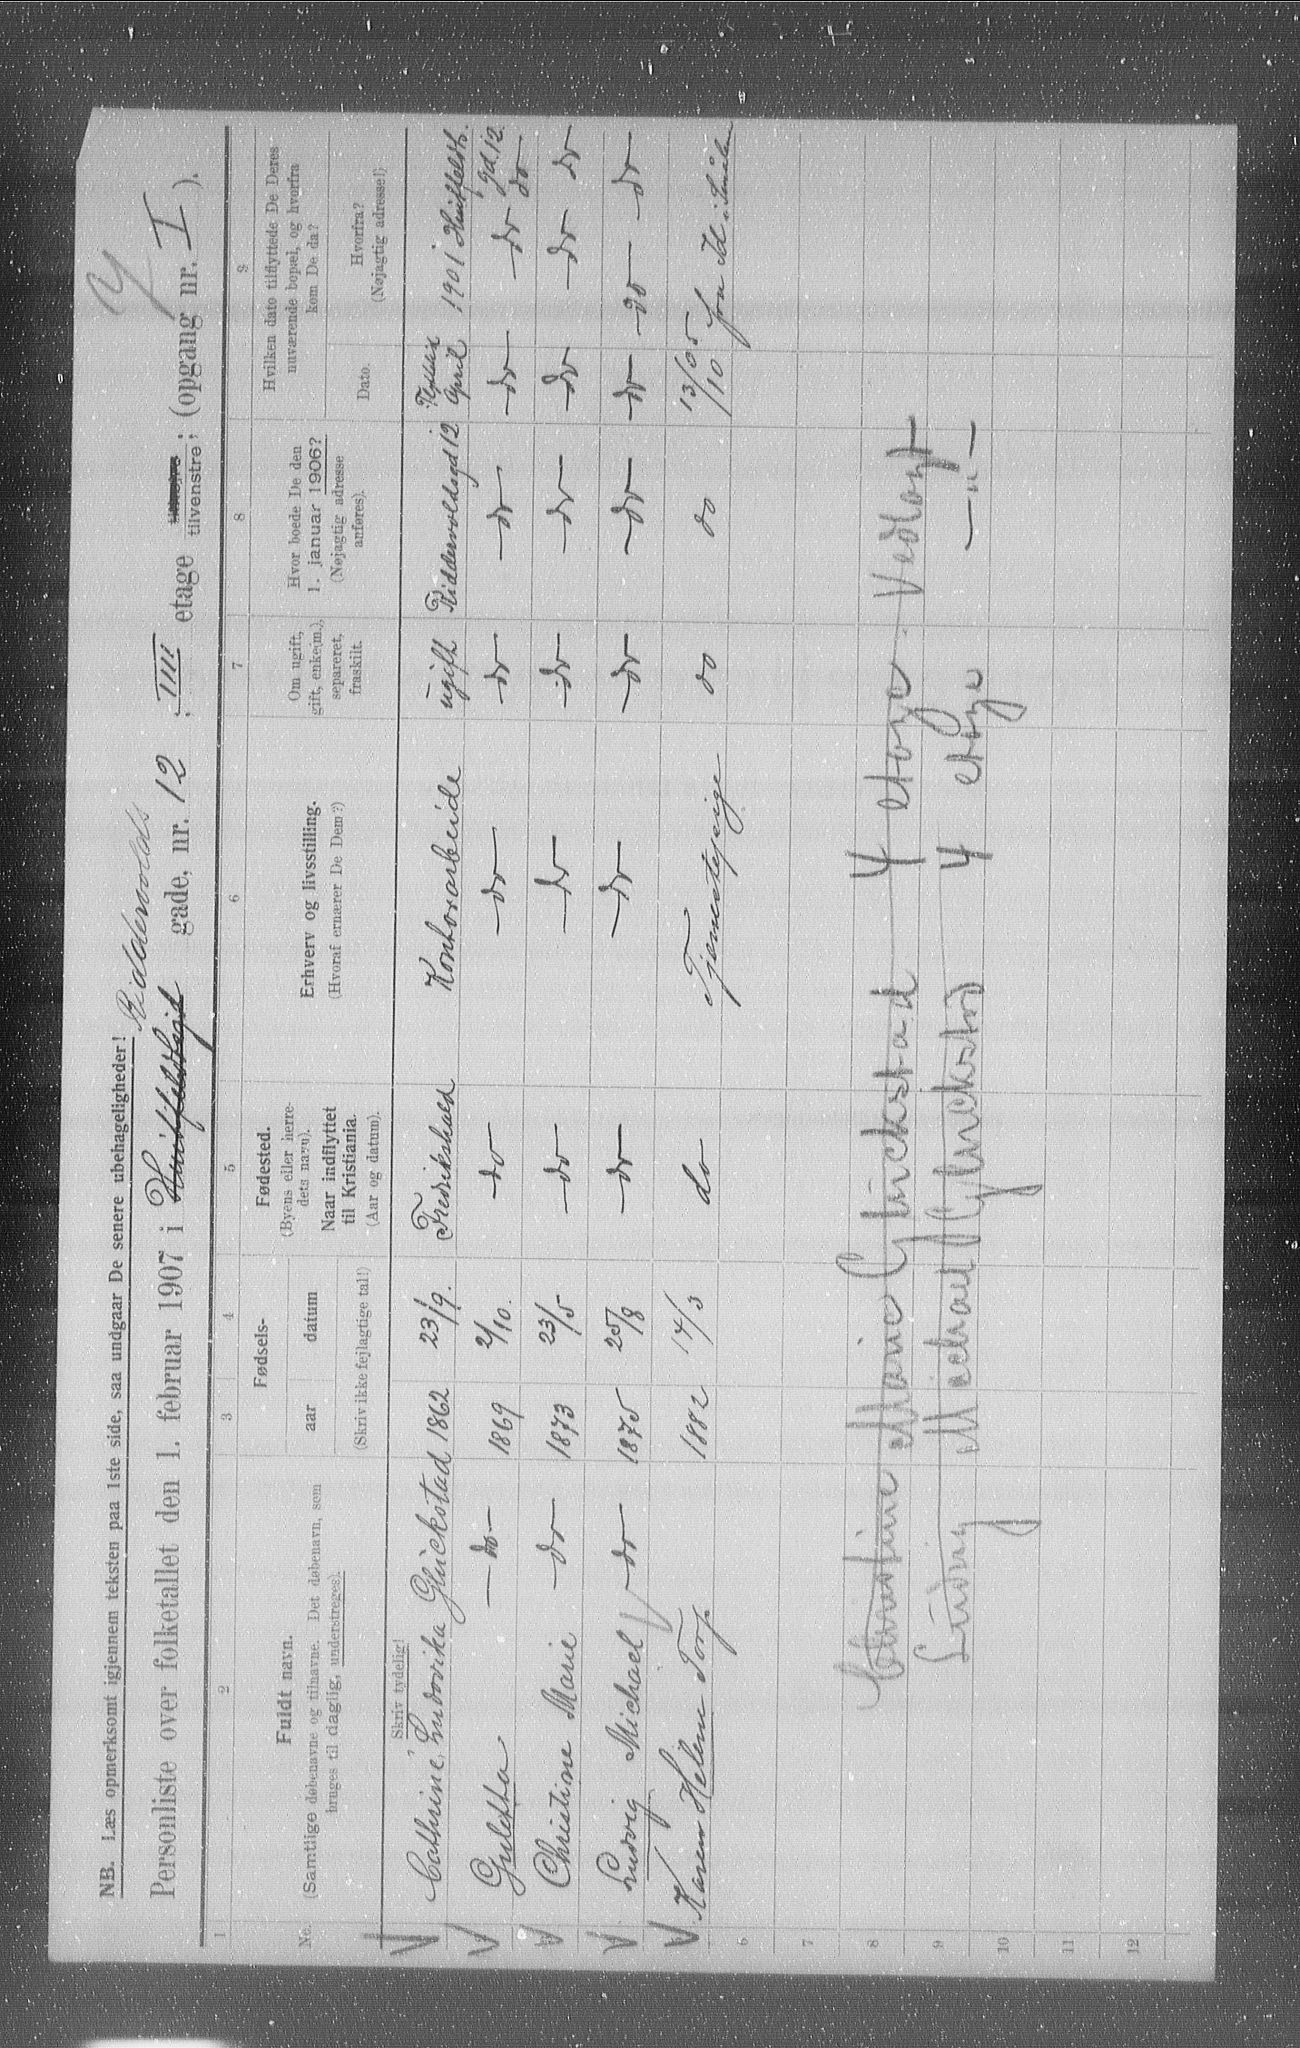 NB. Læs opmerksomt igjennem teksten paa 1ste side, saa undgaar De senere ubehageligheder!
Riddervolds
Personliste over folketallet den 1. februar 1907 i Huitfeldtsgd gade, nr. 12; IIII etage tilvenstre; (opgang nr. I).
1 2 3 4 5 6 7 8 9
No.
Fuldt navn.
(Samtlige døbenavne og tilnavne. Det døbenavn, som
bruges til daglig, understreges).
Fødsels-
aar
datum
(Skriv ikke fejlagtige tal!)
Fødested.
(Byens eller herre-
dets navn).
Naar indflyttet
til Kristiania.
(Aar og datum).
Erhverv og livsstilling.
(Hvoraf ernærer De Dem?)
Om ugift,
gift, enke(m.),
separeret,
fraskilt.
Hvor boede De den
1. januar 1906?
(Nøjagtig adresse
anføres).
Hvilken dato tilflyttede De Deres
nuværende bopæl, og hvorfra
kom De da?
Dato.
Hvorfra?
(Nøjagtig adresse!)
Skriv tydelig!
Cathrine Ludovika Glückstad 1862 23/9. Fredrikshald Kontorarbeide ugift Riddervoldsgd 12 Flyttet April 1901 Huitfeldts. gd. 12
Guletta —do— 1869 2/10. do —do— —do— —do— —do— —do— do
Christine Marie —do— 1873 23/5 —do— —do— —do— —do— —do— —do— do
Ludvig Michael —do— 1875 25/8 —do— —do— —do— —do— —do— —do— —do—
Karen Helene Torp 1882 14/3 do Tjenestepige do do 13/10 05 fra Id i Smålen
6
7
8 Christine Marie Glückstad 4 etage Vedlagt
9 Ludvig Michael Glückstad 4 etage — " —
10
11
12